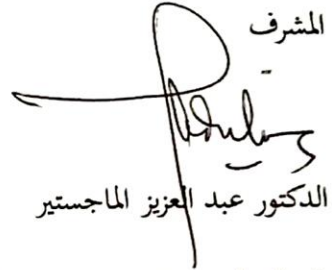 المشرف
الدكتور عبد العزيز الماجستير